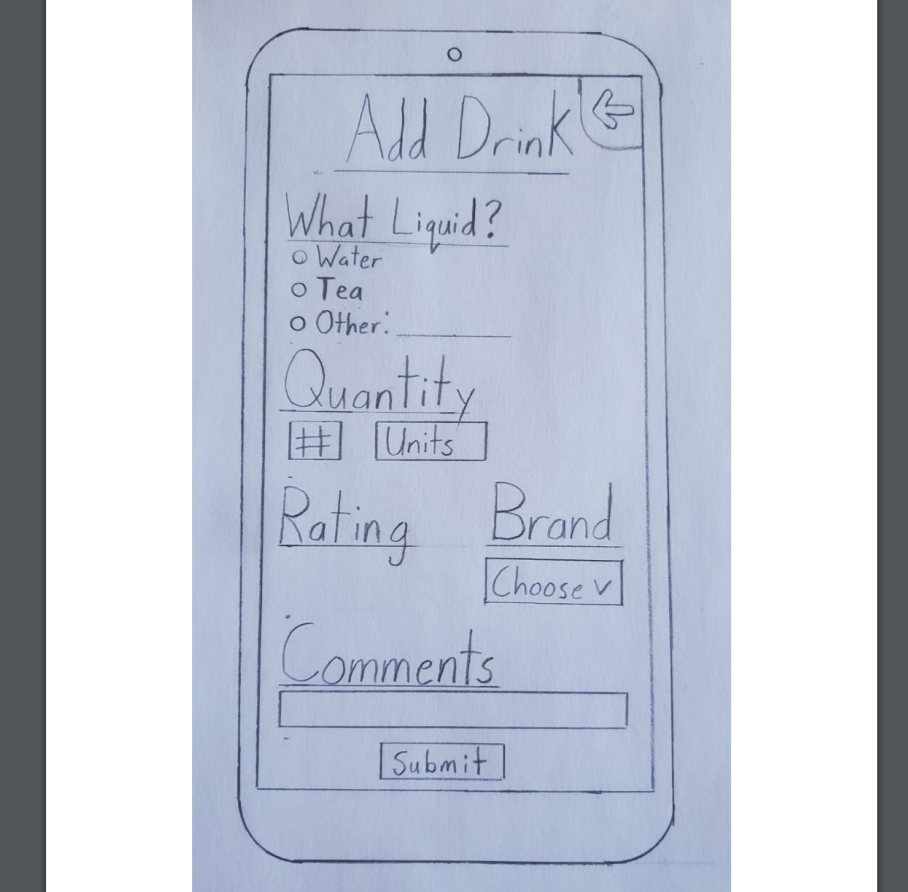 Add Drink
What Liquid?
Water
Tea
Other:
Quantity
# Units
Rating Brand
Choose v
Comments
Submit